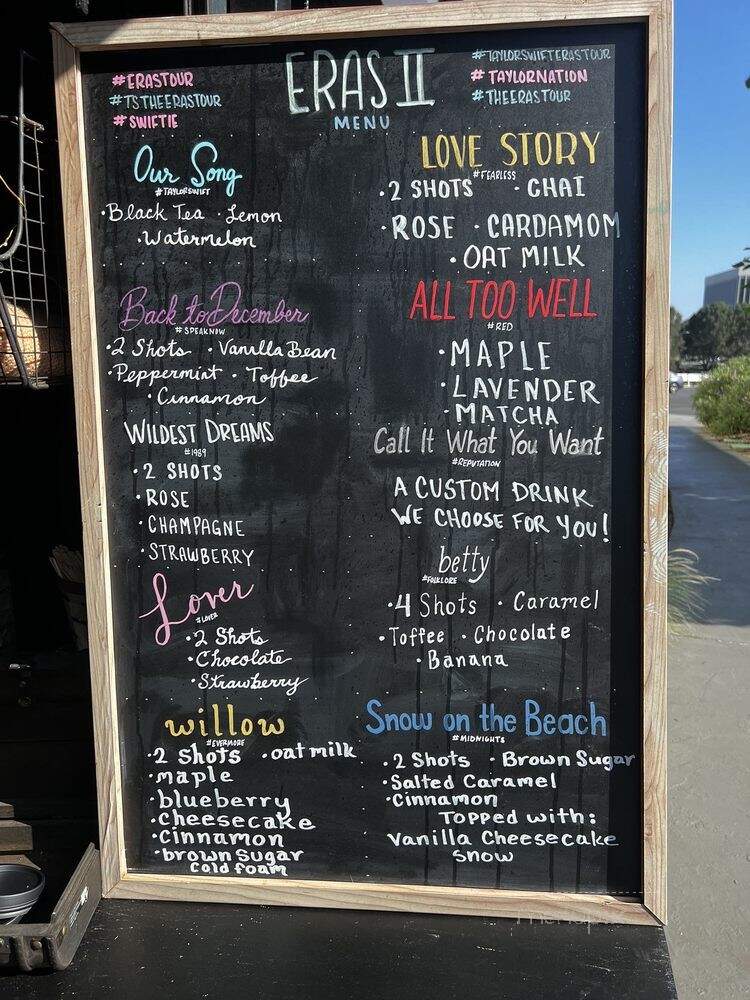 #ERASTOUR
#TSTHEERASTOUR
#SWIFTIE
ERAS II
MENU
#TAYLORSWIFTERASTOUR
#TAYLORNATION
#THEERASTOUR
Our Song
#TAYLORSWIFT
·Black Tea ·Lemon
·Watermelon
Back to December
#SPEAKNOW
·2 Shots ·Vanilla Bean
·Peppermint ·Toffee
·Cinnamon
WILDEST DREAMS
#1989
·2 SHOTS
·ROSE
·CHAMPAGNE
·STRAWBERRY
Lover
#LOVER
·2 Shots
·Chocolate
·Strawberry
willow
#EVERMORE
·2 Shots ·oat milk
·maple
·blueberry
·cheesecake
·cinnamon
·brown sugar
cold foam
LOVE STORY
#FEARLESS
·2 SHOTS ·CHAI
·ROSE ·CARDAMOM
·OAT MILK
ALL TOO WELL
#RED
·MAPLE
·LAVENDER
·MATCHA
Call It What You Want
#REPUTATION
A CUSTOM DRINK
WE CHOOSE FOR YOU!
betty
#FOLKLORE
·4 Shots ·Caramel
·Toffee ·Chocolate
·Banana
Snow on the Beach
#MIDNIGHTS
·2 Shots ·Brown Sugar
·Salted Caramel
·Cinnamon
Topped with:
Vanilla Cheesecake
Snow